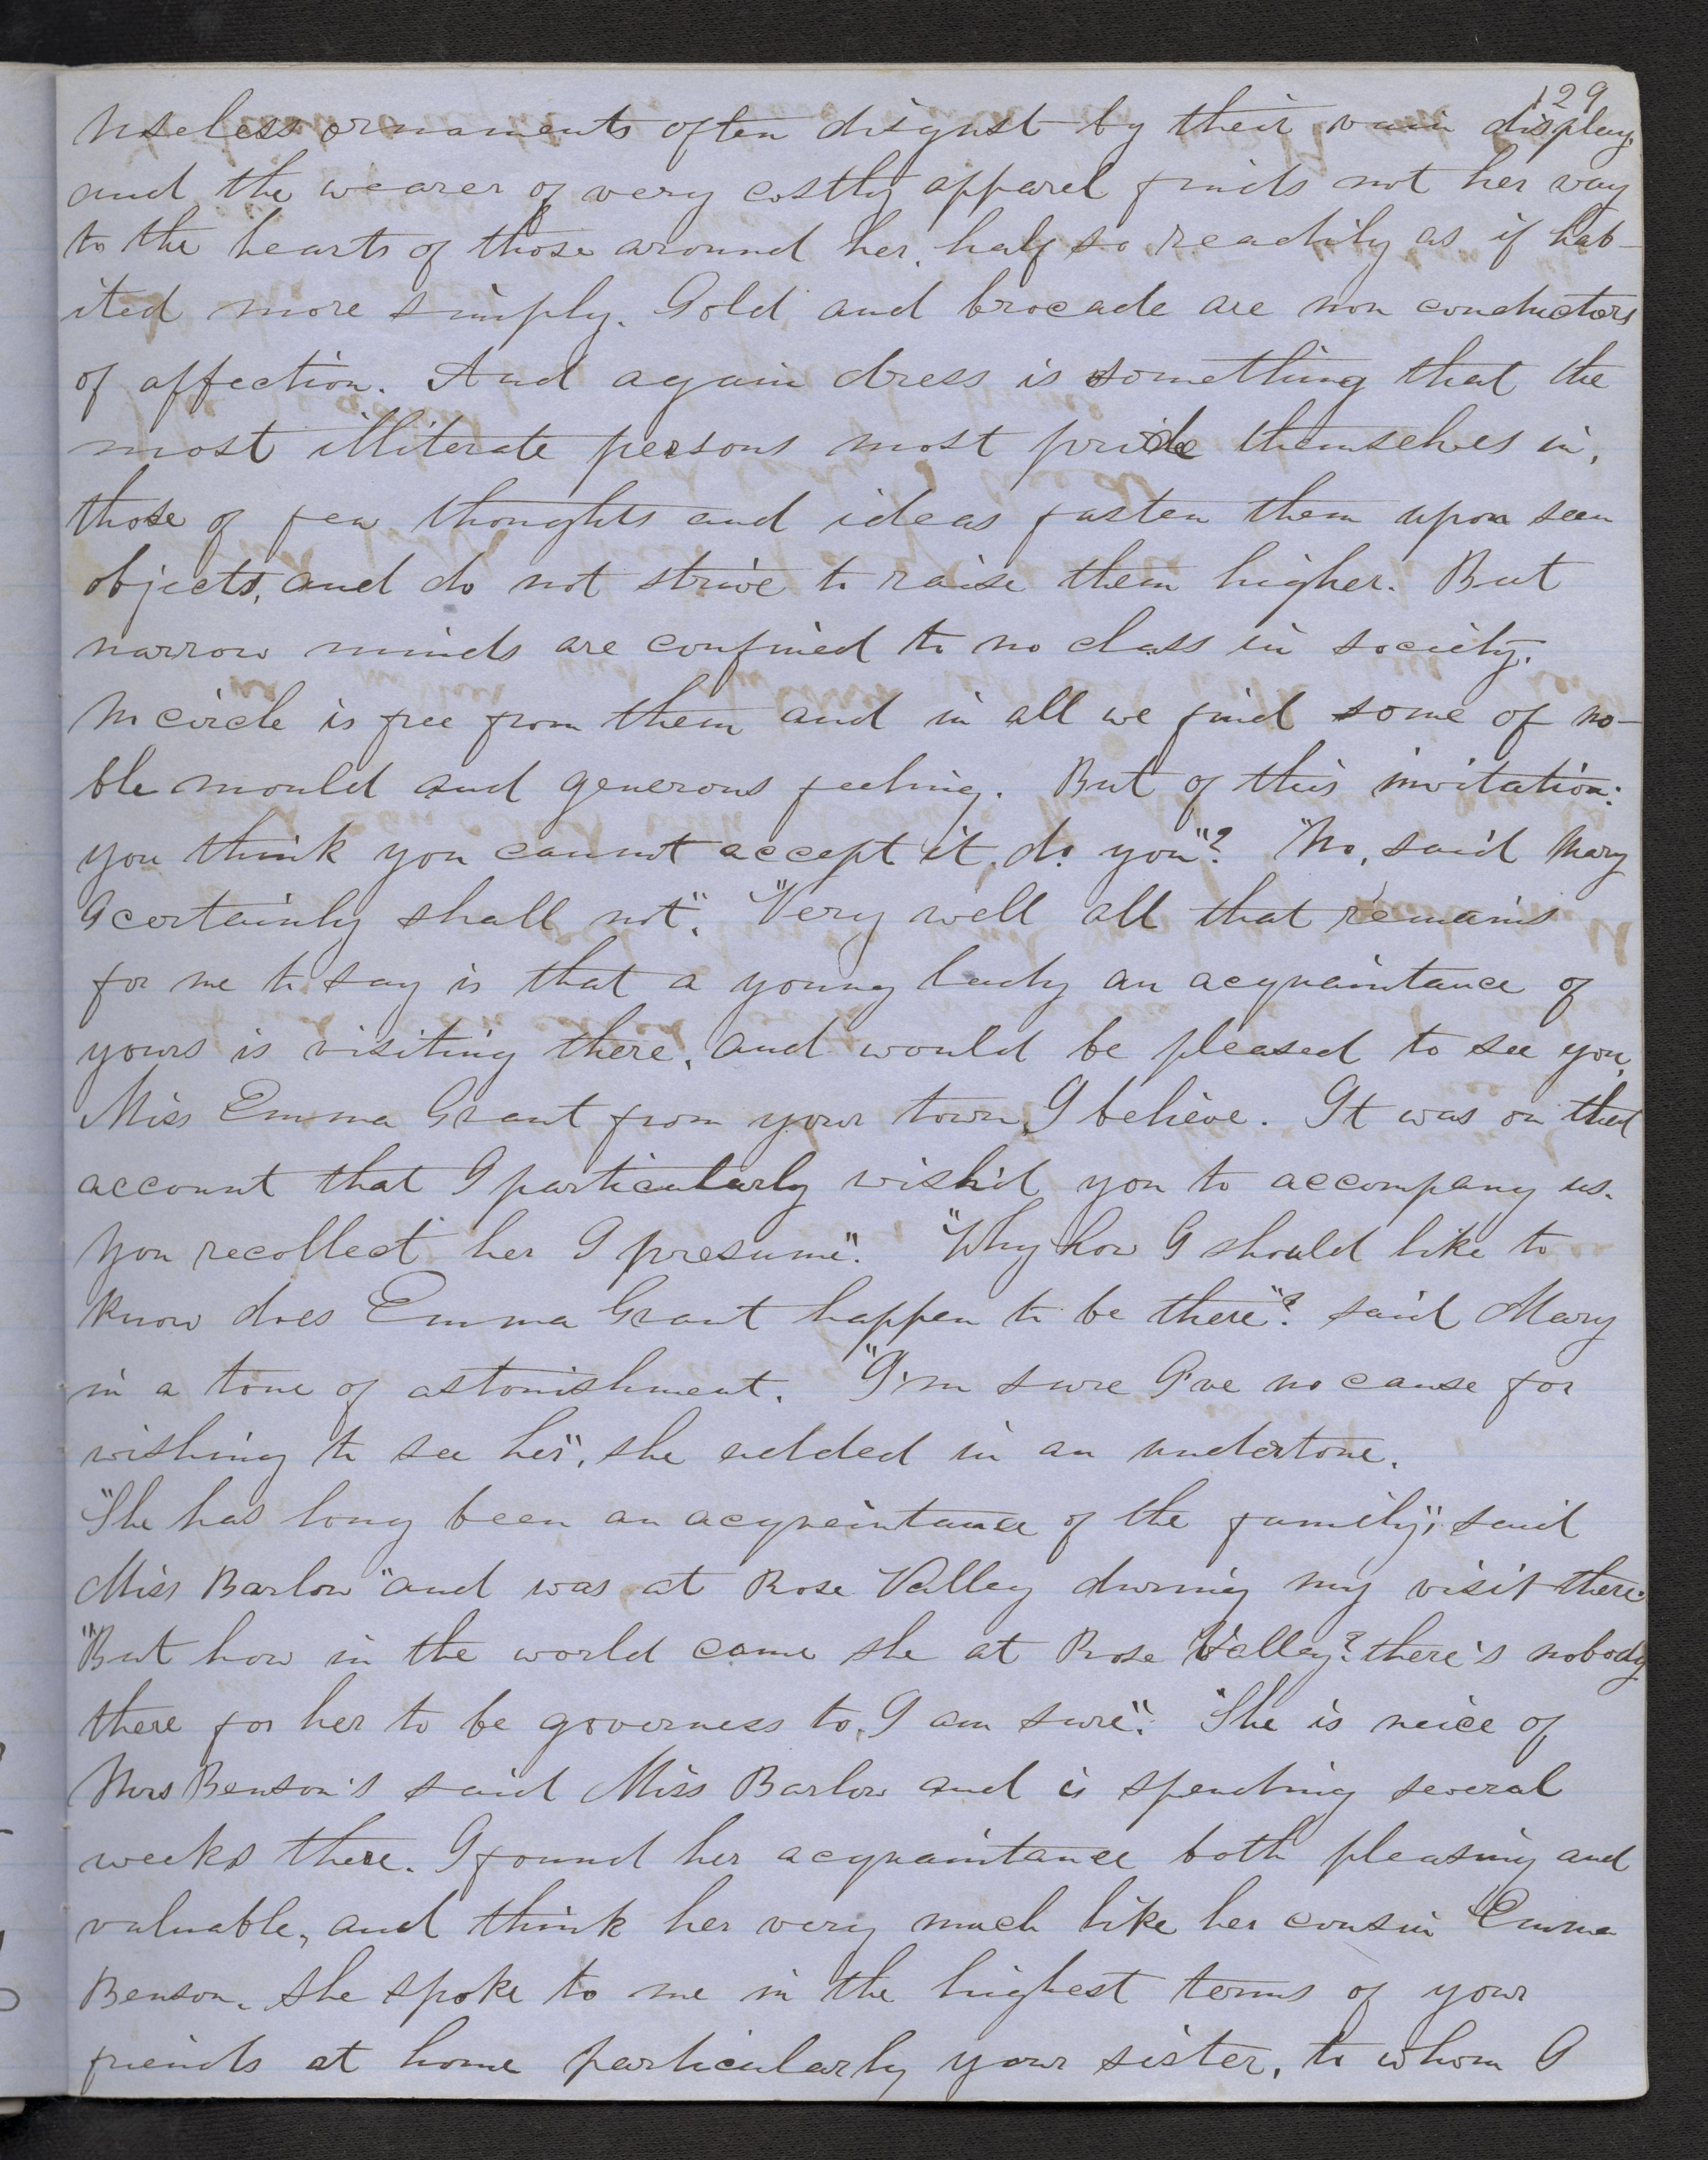 129
Useless ornaments often disgust by their vain display.
and the wearer of very costly apparel finds not her way
to the hearts of those around her, half so readily as if hab-
ited more simply. Gold and brocade are non conductors
of affection. And again dress is something that the
most illiterate persons most pride themselves in,
those of few thoughts and ideas fasten them upon seen
objects, and do not strive to raise them higher. But
narrow minds are confined to no class in society.
No circle is free from them and in all we find some of no-
ble mould and generous feeling. But of this invitation:
you think you cannot accept it, do you"? "No, said Mary
I certainly shall not". "Very well all that remains
for me to say is that a young lady an acquaintance of
yours is visiting there, and would be pleased to see you,
Miss Emma Grant from your town, I believe. It was on that
account that I particularly wish'd you to accompany us.
You recollect her I presume". "Why how I should like to
know does Emma Grant happen to be there"? said Mary
in a tone of astonishment. "I'm sure I've no cause for
wishing to see her", she added in an undertone.
"She has long been an acquaintance of the family", said
Miss Barlow "and was at Rose Valley during my visit there."
"But how in the world came she at Rose Valley? there's nobody
there for her to be governess to, I am sure". "She is neice of
Mrs Benson's said Miss Barlow and is spending several
weeks there. I found her acquaintance both pleasing and
valuable, and think her very much like her cousin Emma
Benson. She spoke to me in the highest terms of your
friends at home particularly your sister, to whom I